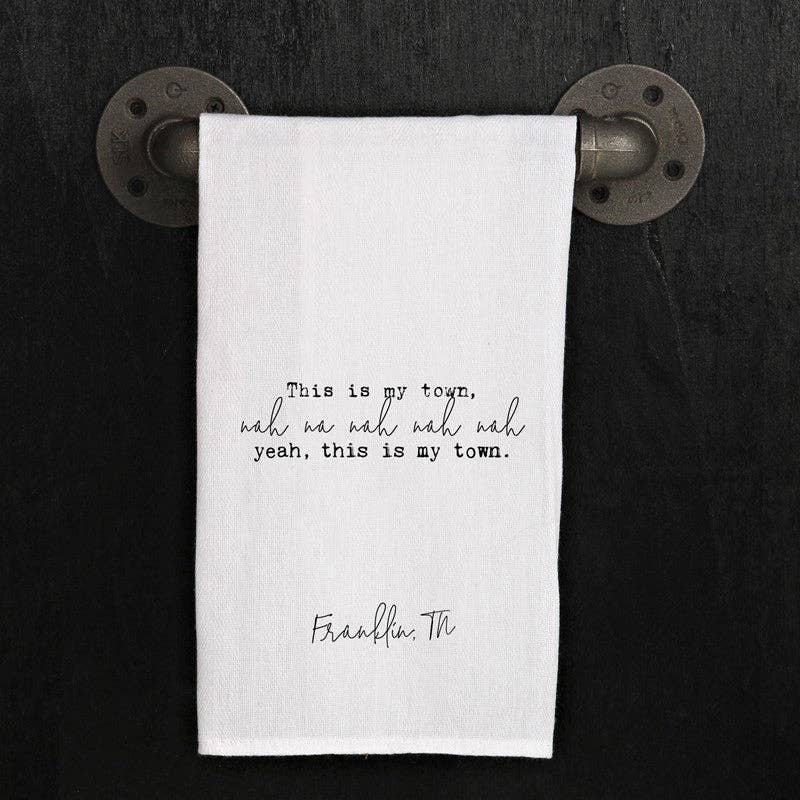 This is my town,
nah na nah nah nah
yeah, this is my town.
Franklin, TN